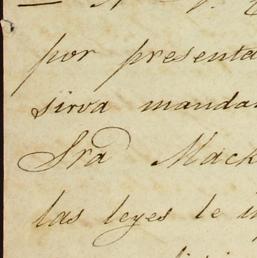 por presenta
sirva mandar
Sra Mack
las leyes le i